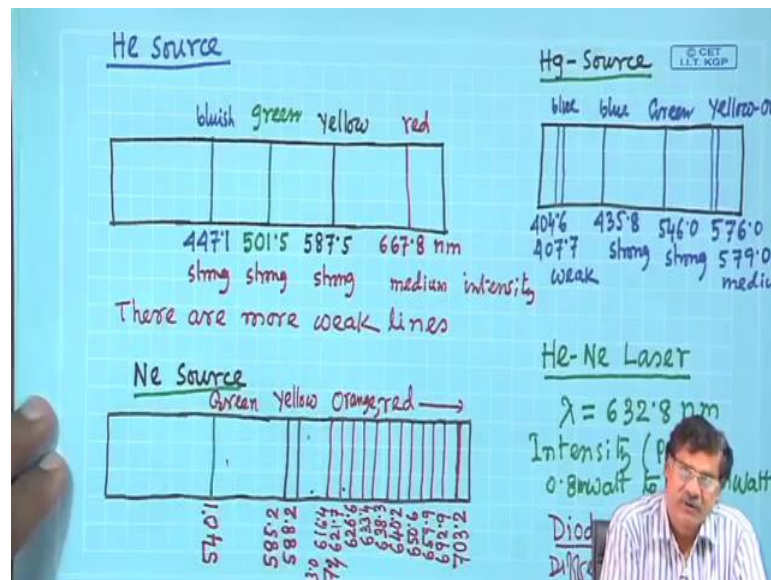 He Source
bluish green yellow red
447.1 501.5 587.5 667.8 nm
strong strong strong medium intensity
There are more weak lines
Ne Source
Green yellow Orange, red →
540.1
585.2
588.2
616.4
621.7
626.6
633.4
638.3
640.2
650.6
659.9
692.9
703.2
© CET
I.I.T. KGP
Hg-Source
blue blue Green yellow-o
404.6 435.8 546.0 576.0
407.7 strong strong 579.0
weak mediu
He-Ne Laser
λ = 632.8 nm
Intensity (P
0.8mwatt to mwatt
Diod
Diffe